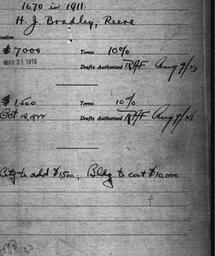 1670 in 1911.
H. J. Bradley, Reeve
$7000 Terms 10%
MAR 31 1916 Drafts Authorized RHF Aug 9/23
$1,500 Terms 10%
Oct 19, 1922 Drafts Authorized RHF Aug 9/23
City to add $1500; Bldg to cost $10,000